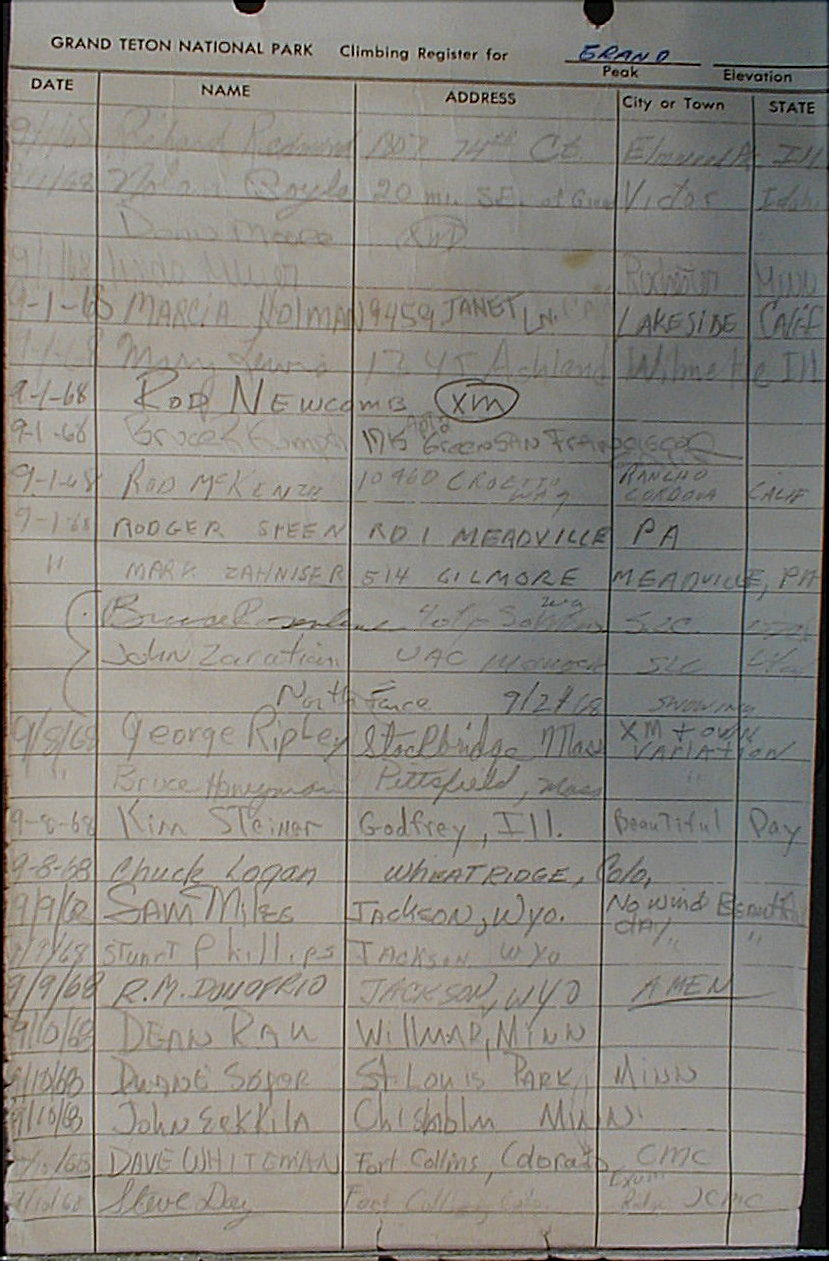 GRAND TETON NATIONAL PARK Climbing Register for GRAND
Peak Elevation
DATE NAME ADDRESS City or Town STATE
Richard Redmond 1807 74th Ct. Ill
9/1/68 Boyle 20 mi. SE. of Victor Idaho
Moore
9/1/68 Minn
9-1-68 MARCIA HOLMAN 9459 JANET LN. LAKESIDE CALIF
9-1-68 Mary Lewis 1245 Ashland Wilmette Ill
9-1-68 ROD NEWCOMB XM
9-1-68 Bruce 1715 GREEN SAN FRANCISCO
9-1-68 ROD MCKENZIE 10460 CROETTO WAY RANCHO CORDOVA CALIF
9-1-68 RODGER STEEN RD 1 MEADVILLE PA
" MARK ZAHNISER 514 GILMORE MEADVILLE, PA
SLC
John Zaratian UAC SLC Utah
North Face 9/2/68 SNOWING
9/8/68 George Ripley Stockbridge Mass XM + OWN VARIATION
" Bruce Honeyman Pittsfield, Mass "
9-8-68 Kim Steiner Godfrey, Ill. Beautiful Day
9-8-68 Chuck Logan WHEATRIDGE, Colo,
9/9/62 SAM Miles JACKSON, Wyo. No wind Beautiful day
9/9/68 STUART Phillips JACKSON WYO " "
9/9/68 R.M. DONOFRIO JACKSON, WYO AMEN
9/10/68 DEAN RAU WILLMAR, MINN
9/10/68 DUANE St. Louis PARK, MINN
9/10/68 John Eekkila Chisholm MINN.
9/10/68 DAVE WHITEMAN Fort Collins, Colorado CMC
9/10/68 Steve Day Fort Collins, Colo. Exum Ridge CMC